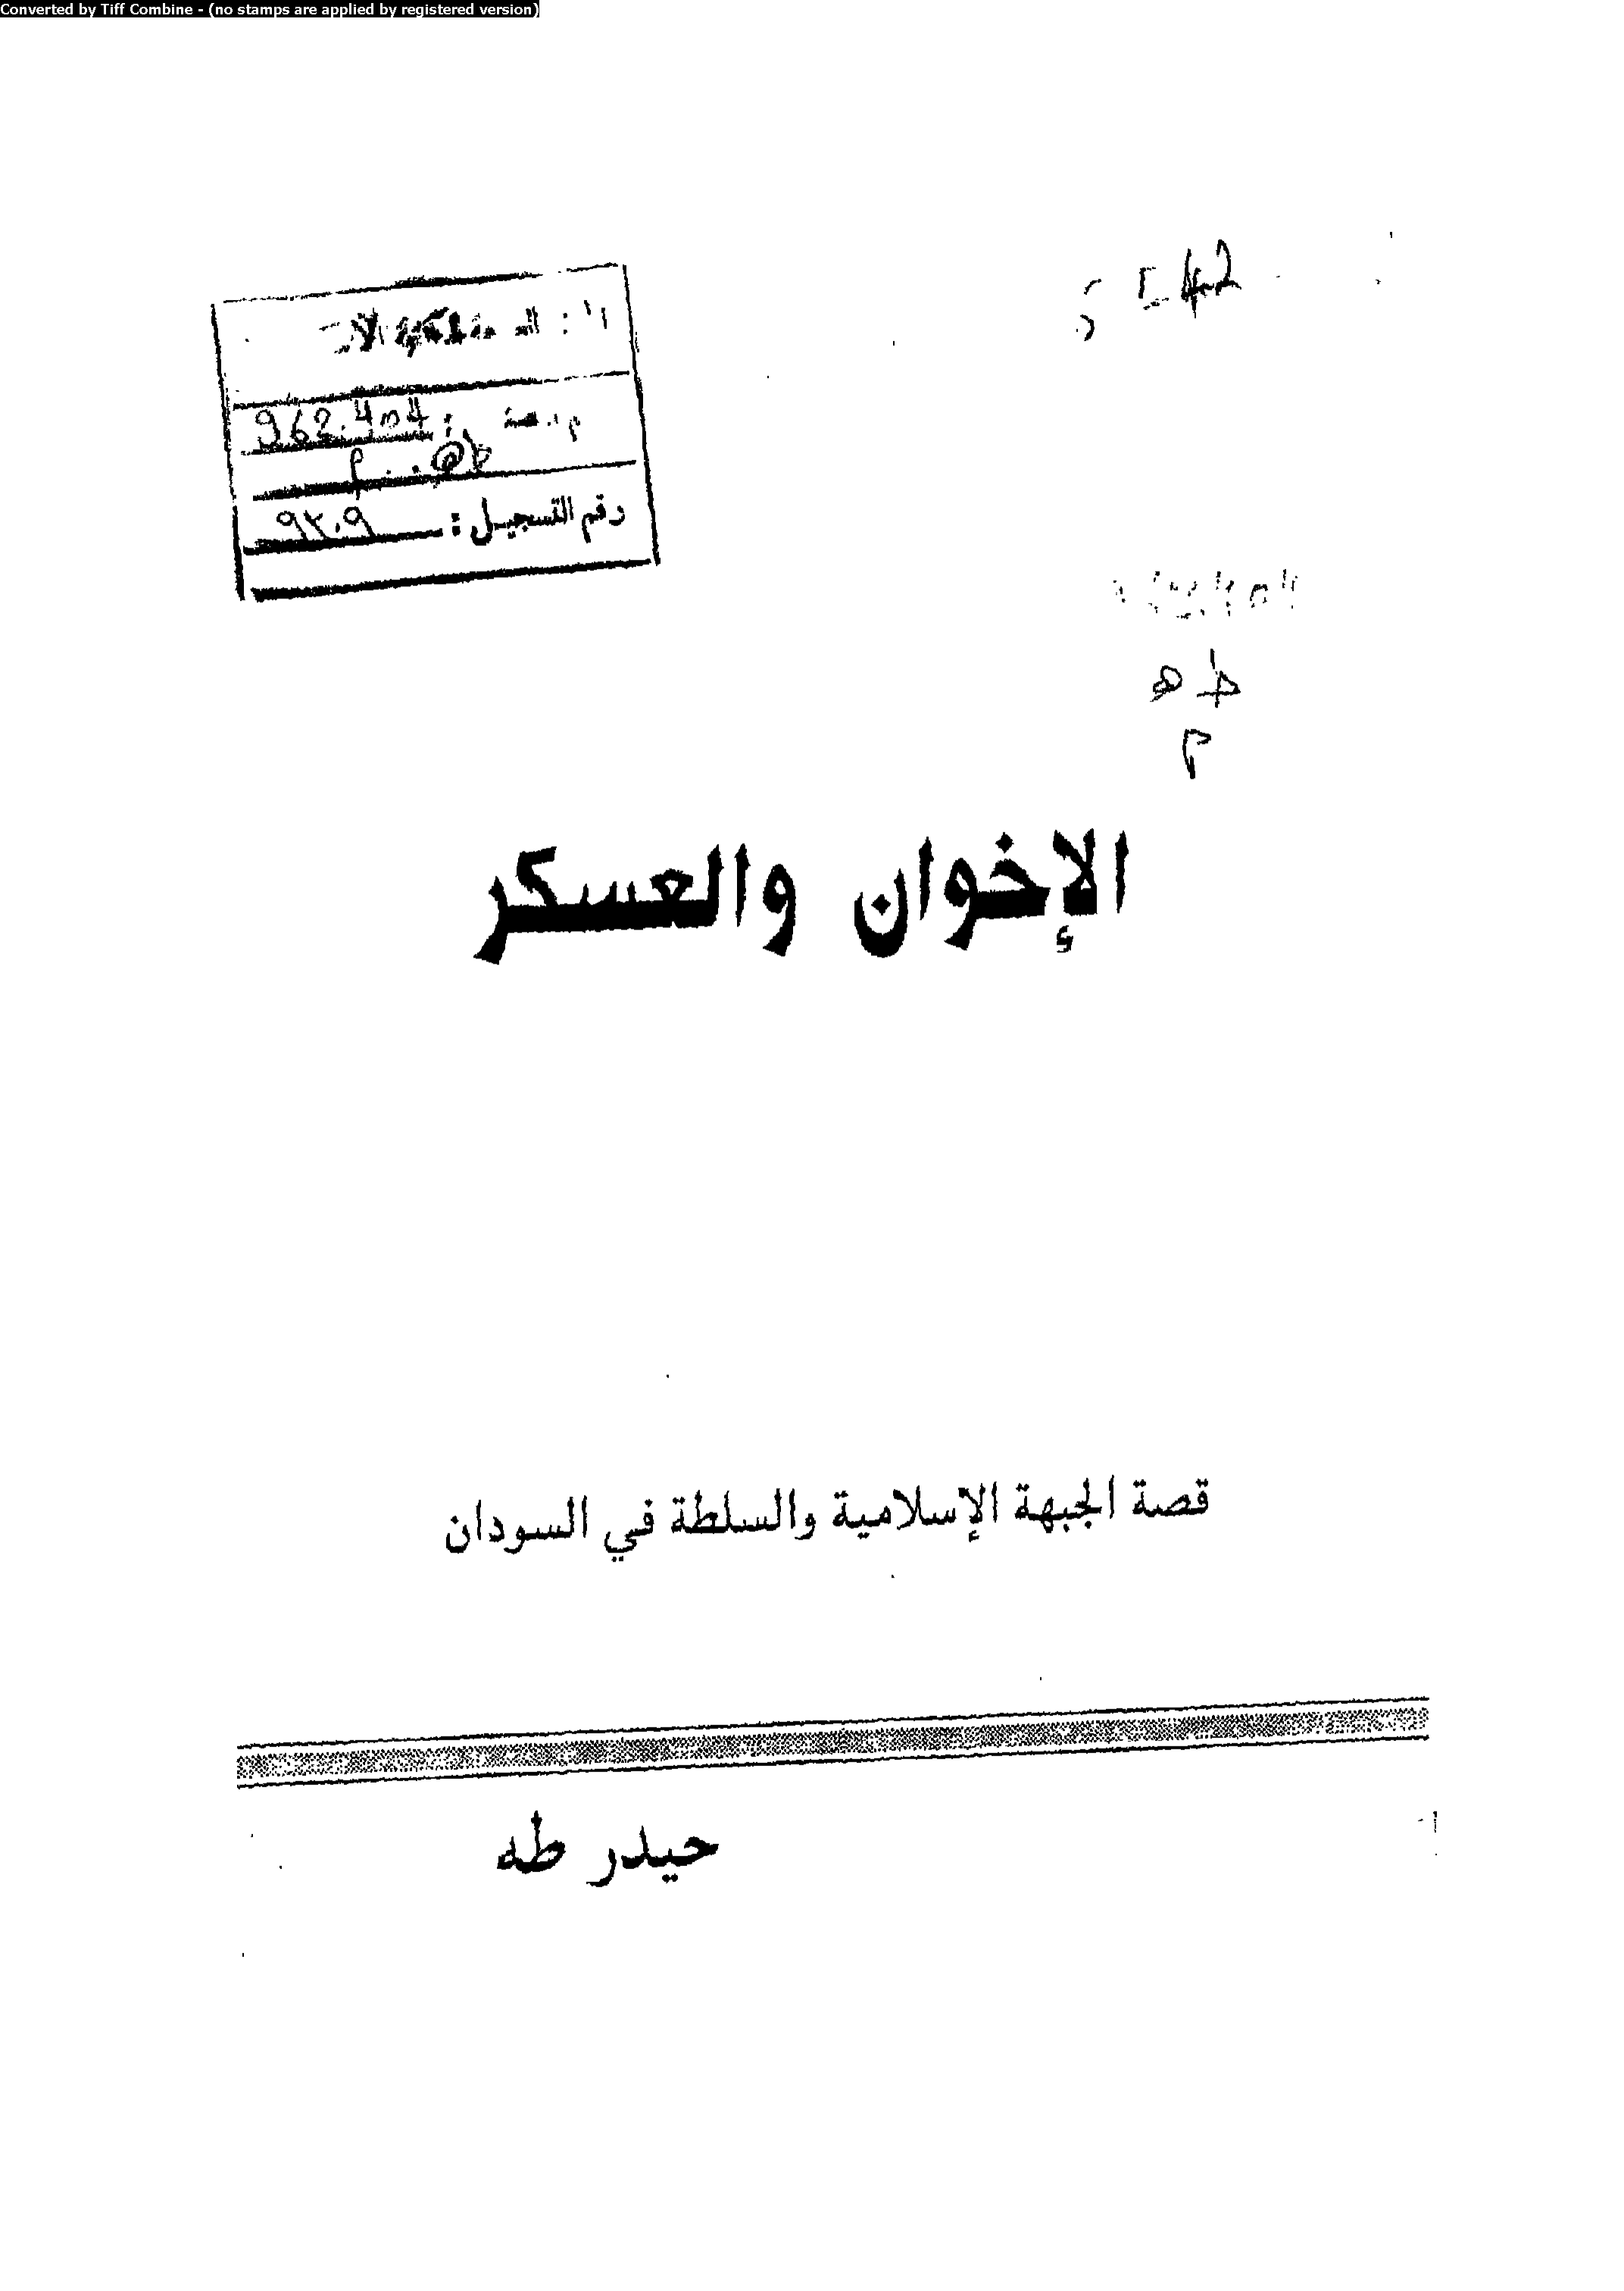 Converted by Tiff Combine - (no stamps are applied by registered version)
962.404
ط ه
م
رقم التسجيل : ٩٣٠٩
ط ه
م
الإخوان والعسكر
قصة الجبهة الإسلامية والسلطة في السودان
حيدر طه